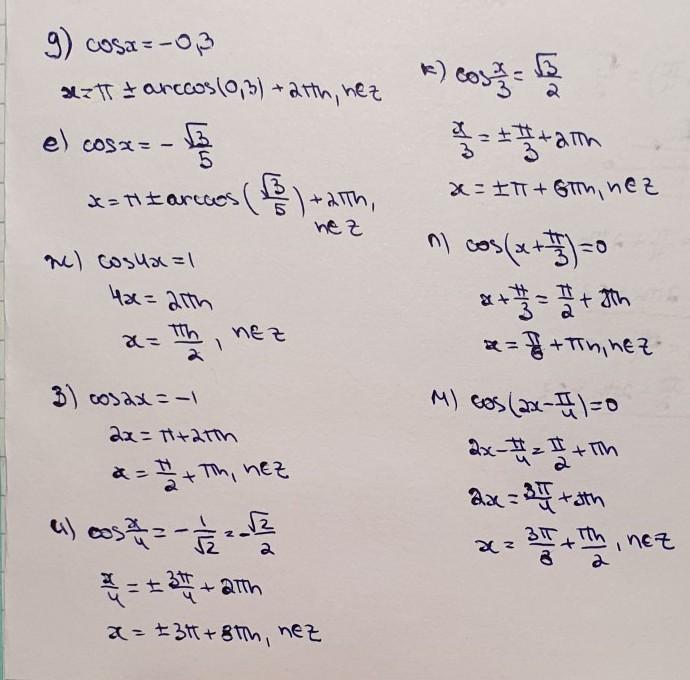 д) cosx = -0,3
x = π ± arccos(0,3) + 2πn, n∈Z
е) cosx = -√3/5
x = π ± arccos(√3/5) + 2πn,
n∈Z
ж) cos4x = 1
4x = 2πn
x = πn/2, n∈Z
з) cos2x = -1
2x = π + 2πn
x = π/2 + πn, n∈Z
и) cos x/4 = -1/√2 = -√2/2
x/4 = ± 3π/4 + 2πn
x = ±3π + 8πn, n∈Z
к) cos x/3 = √3/2
x/3 = ± π/3 + 2πn
x = ±π + 6πn, n∈Z
л) cos(x + π/3) = 0
x + π/3 = π/2 + πn
x = π/6 + πn, n∈Z
м) cos(2x - π/4) = 0
2x - π/4 = π/2 + πn
2x = 3π/4 + πn
x = 3π/8 + πn/2, n∈Z